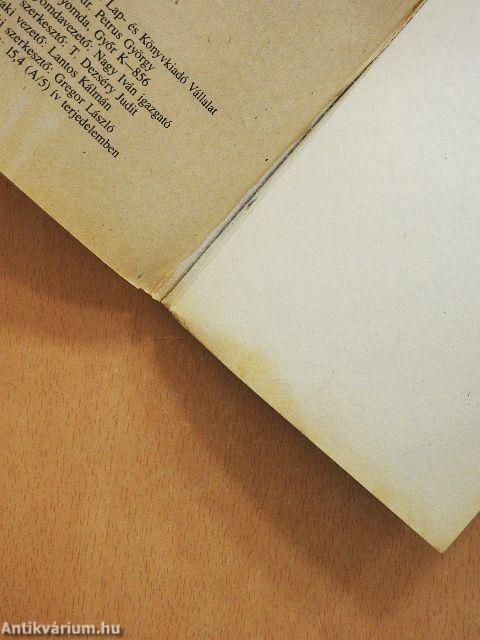 Lap- és Könyvkiadó Vállalat
Petrus György
yomda, Győr K—856
yomdavezető: Nagy Iván igazgató
szerkesztő: T. Dezséry Judit
aki vezető: Lantos Kálmán
i szerkesztő: Gregor László
15,4 (A/5) ív terjedelemben
Antikvárium.hu